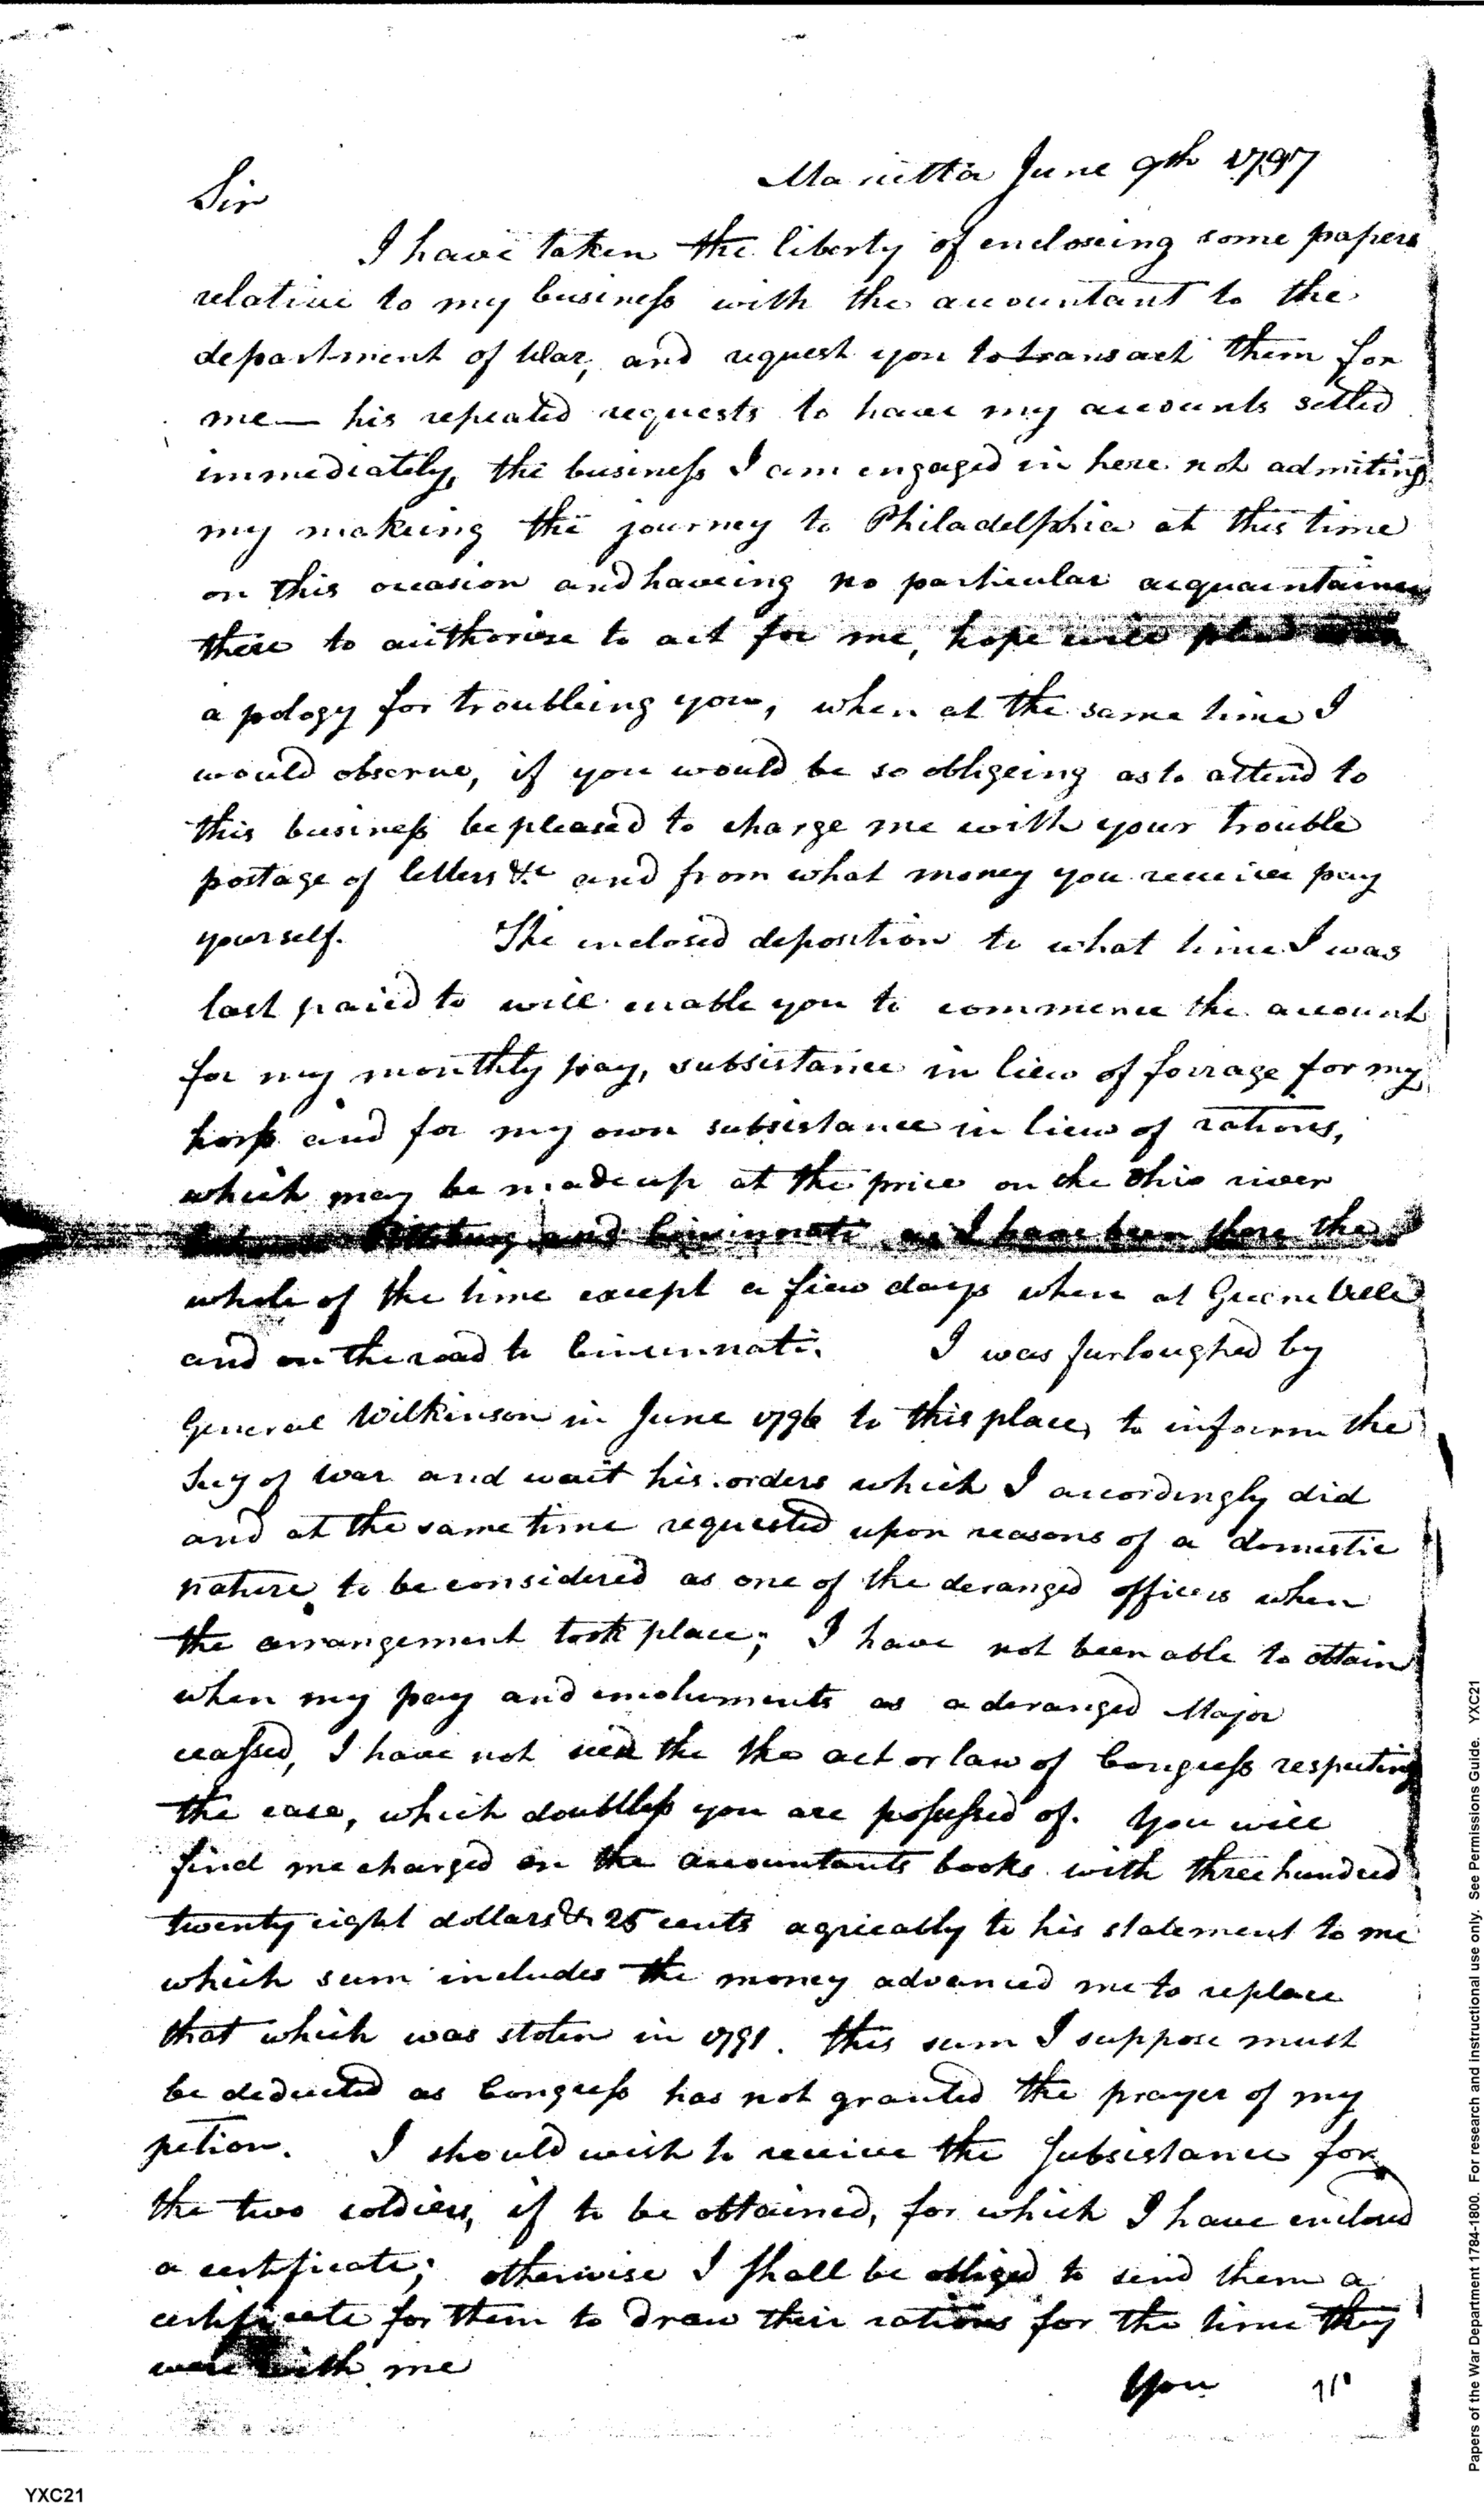 Marietta June 9th 1797
Sir
I have taken the liberty of encloseing some papers
relative to my business with the accountant to the
department of War, and request you to transact them for
me — his repeated requests to have my accounts settled
immediately, the business I am engaged in here not admiting
my makeing the journey to Philadelphia at this time
on this occasion and haveing no particular acquaintance
there to authorise to act for me, hope will plead
apology for troubleing you, when at the same time I
would observe, if you would be so obligeing as to attend to
this business be pleased to charge me with your trouble
postage of letters &c and from what money you receive pay
yourself. The inclosed deposition to what time I was
last paied to will enable you to commence the account
for my monthly pay, subsistance in lieu of forrage for my
horss and for my own subsistance in lieu of rations,
which may be made up at the price on the Ohio river
Pittsburg and Cincinnati as I have been there the
whole of the time except a few days when at Greeneville
and on the road to Cincinnati. I was furloughed by
General Wilkinson in June 1796 to this place, to inform the
Secy of War and wait his orders which I accordingly did
and at the same time requested upon reasons of a domestic
nature to be considered as one of the deranged officers when
the arrangement took place; I have not been able to obtain
when my pay and emoluments as a deranged Major
ceassed, I have not seen the the act or law of Congress respecting
the case, which doubtless you are possessed of. You will
find me charged on the accountants books with three hundred
twenty eight dollars & 25 cents agreeably to his statement to me
which sum includes the money advanced me to replace
that which was stolen in 1791. this sum I suppose must
be deducted as Congress has not granted the prayer of my
petion. I should wish to receive the Subsistance for
the two soldiers, if to be obtained, for which I have enclosed
a certificate; otherwise I shall be obliged to send them a
certificate for them to draw their rations for the time they
were with me
You
Papers of the War Department 1784-1800. For research and instructional use only. See Permissions Guide. YXC21
YXC21